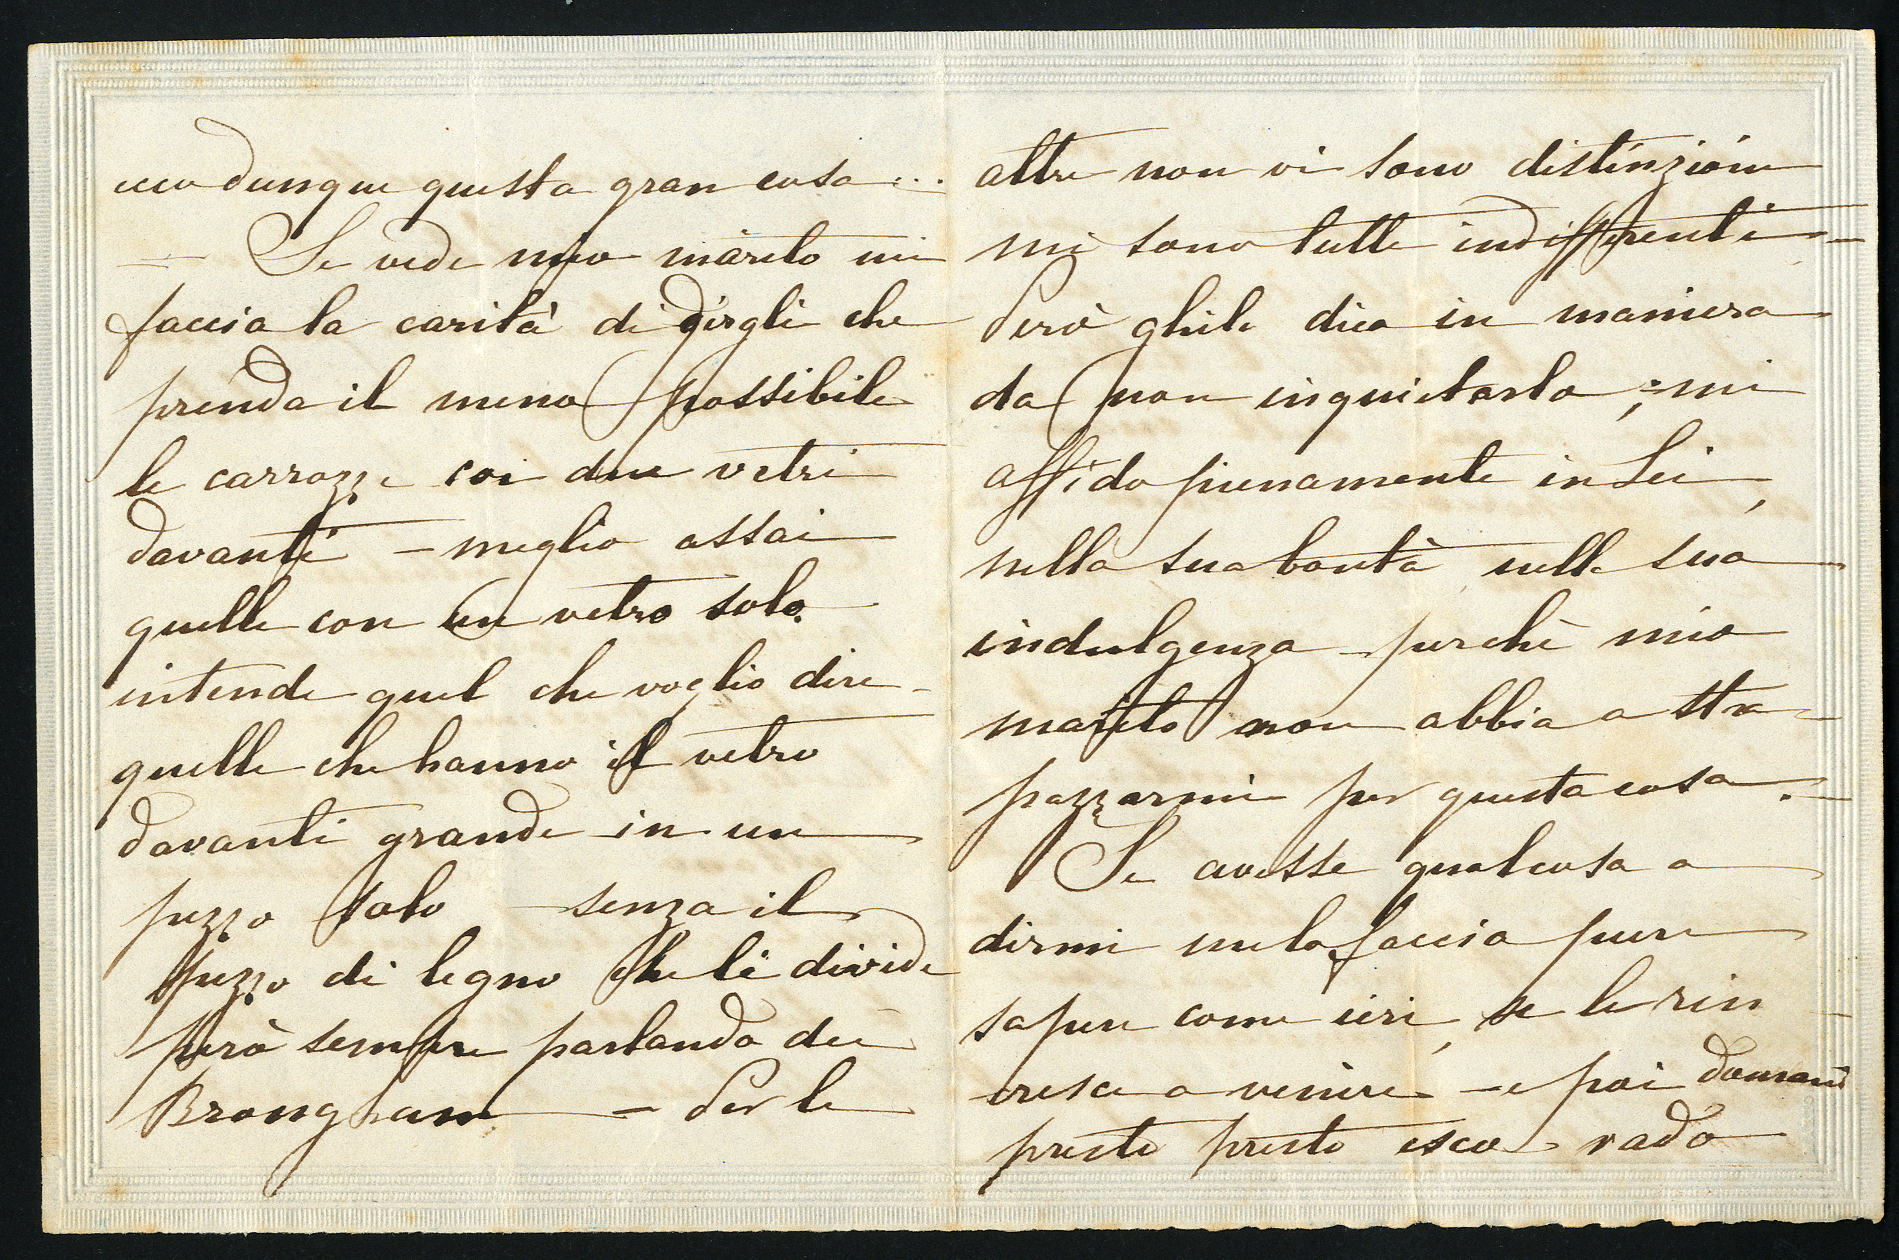 ecco dunque questa gran cosa ...
= Se vede mio marito mi
faccia la carità di dirgli che
prenda il meno possibile
le carrozze coi due vetri
davanti – meglio assai
quelle con un vetro solo.
intende quel che voglio dire –
quelle che hanno il vetro
davanti grande in un
pezzo solo senza il
pezzo di legno che li divide
però sempre parlando dei
Brongham – Per le
altre non vi sono distinzioni
mi sono tutte indifferenti –
Però ghile dica in maniera
da non inquietarlo ; mi
affido pienamente in Lei,
nella sua bontà nella sua
indulgenza – perchè mio
marito non abbia a stra=
pazzarmi per questa cosa. –
Se avesse qualcosa a
dirmi me lo faccia pure
sapere come ieri, se le rin–
cresce a venire – e poi domani
presto presto esco vado